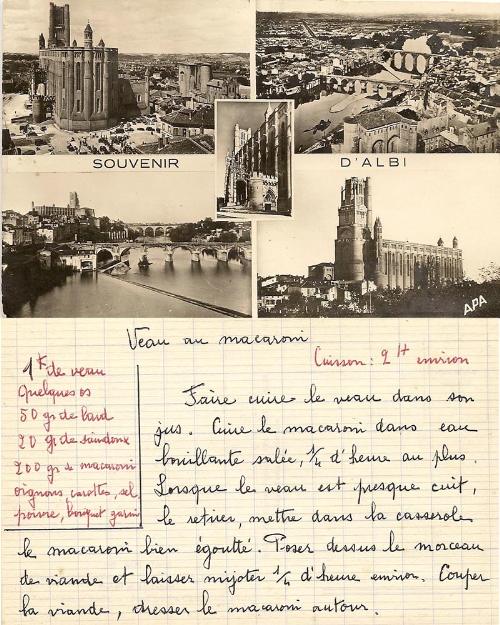 SOUVENIR D'ALBI
APA
Veau au macaroni
Cuisson : 2 H environ
1 K de veau
Quelques os
50 gr de lard
20 gr de saindoux
200 gr de macaroni
oignons, carottes, sel,
poivre, bouquet garni
Faire cuire le veau dans son
jus. Cuire le macaroni dans eau
bouillante salée, 1/4 d'heure au plus.
Lorsque le veau est presque cuit,
le retirer, mettre dans la casserole
le macaroni bien égoutté. Poser dessus le morceau
de viande et laisser mijoter 1/4 d'heure environ. Couper
la viande, dresser le macaroni autour.